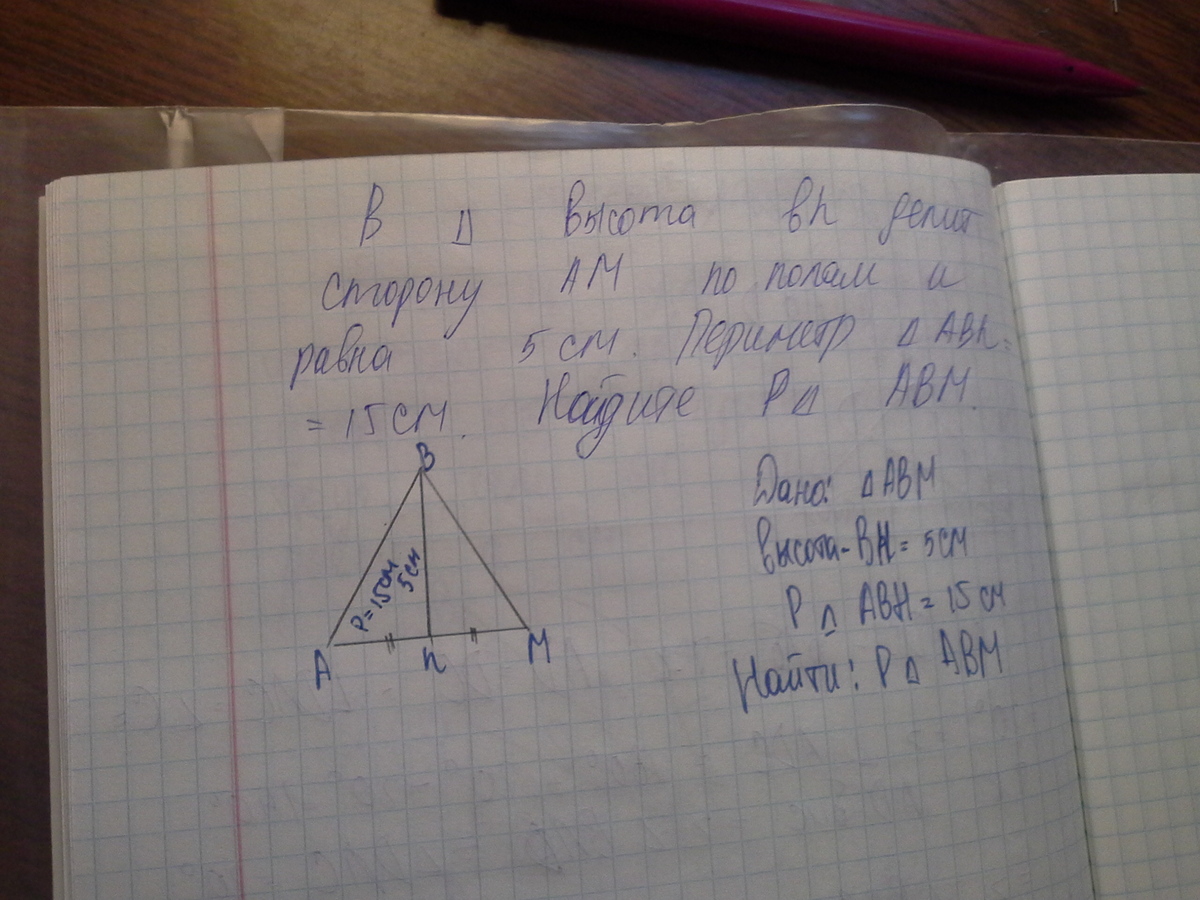 В Δ высота вh делит
сторону АМ по полам и
равна 5 см. Периметр Δ АВh =
= 15 см. Найдите PΔ АВМ.
B
P=15см
5см
A
h
M
Дано: ΔАВМ
высота-ВН= 5см
PΔ АВН = 15 см
Найти: PΔ АВМ